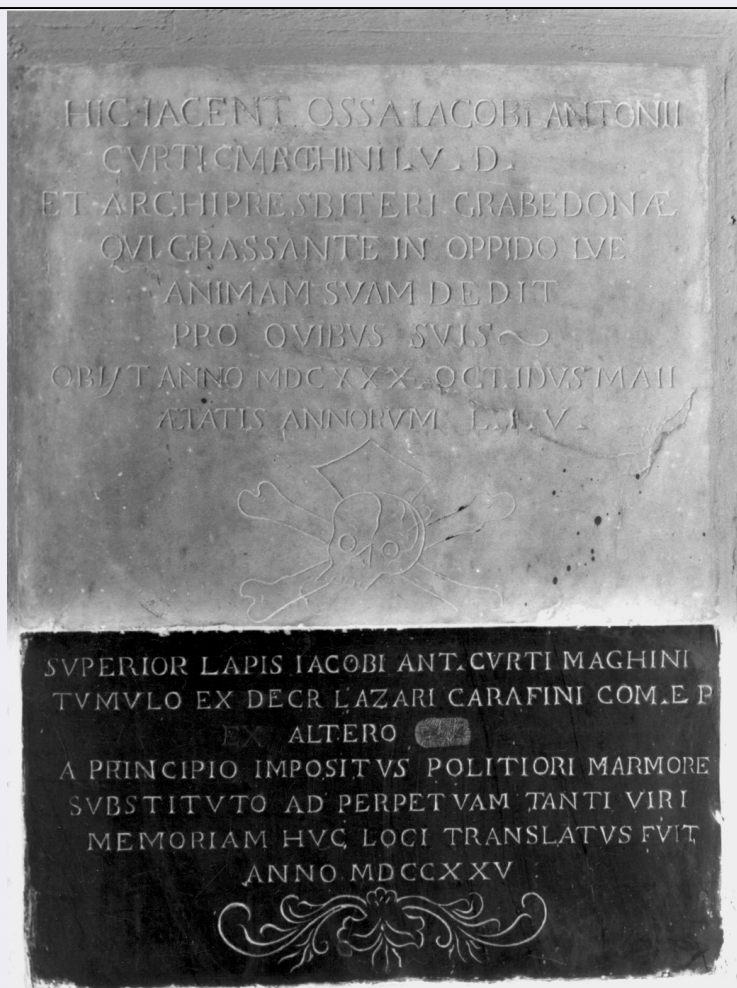 HIC·IACENT OSSA·IACOBI ANTONII
CVRTI I.V.D.
ET ARCHIPRESBITERI GRABEDONÆ
QVI GRASSANTE IN OPPIDO LVE
ANIMAM SVAM DEDIT
PRO OVIBVS SVIS
OBIJT ANNO MDCXXX OCT.IDVS MAII
ÆTATIS ANNORVM L.I.V.
SVPERIOR LAPIS IACOBI ANT. CVRTI MAGHINI
TVMVLO EX DECR LAZARI CARAFINI COM.E P
EX ALTERO
A PRINCIPIO IMPOSITVS POLITIORI MARMORE
SVBSTITVTO AD PERPETVAM TANTI VIRI
MEMORIAM HVC LOCI TRANSLATVS FVIT
ANNO MDCCXXV